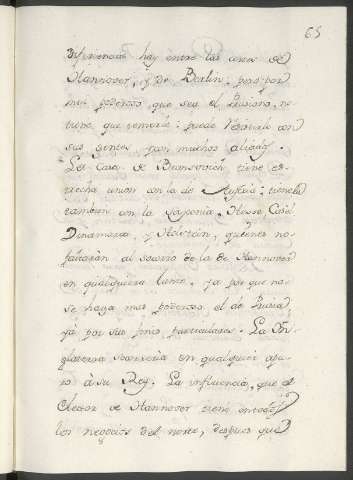 65
diferencias hay entre las casas de
Hannover, y de Berlin: pero por
mas poderoso que sea el Prusiano, no
tiene que temerle: puede resistirle con
sus gentes, y con muchos aliados.
La Casa de Brunswich tiene es-
trecha union con la de Austria: tienela
tambien con la Saxonia, Hesse Casel
Dinamarca, y Holstein, quienes no
faltaràn al socorro de la de Hannover
en qualquiera lance, ya por que no
se haga mas poderoso el de Prusia
yà por sus fines particulares. La In-
glaterra socorreria en qualquier apu-
ro à su Rey. La influencia, que el
Elector de Hannover tiene en todos
los negocios del norte, despues que